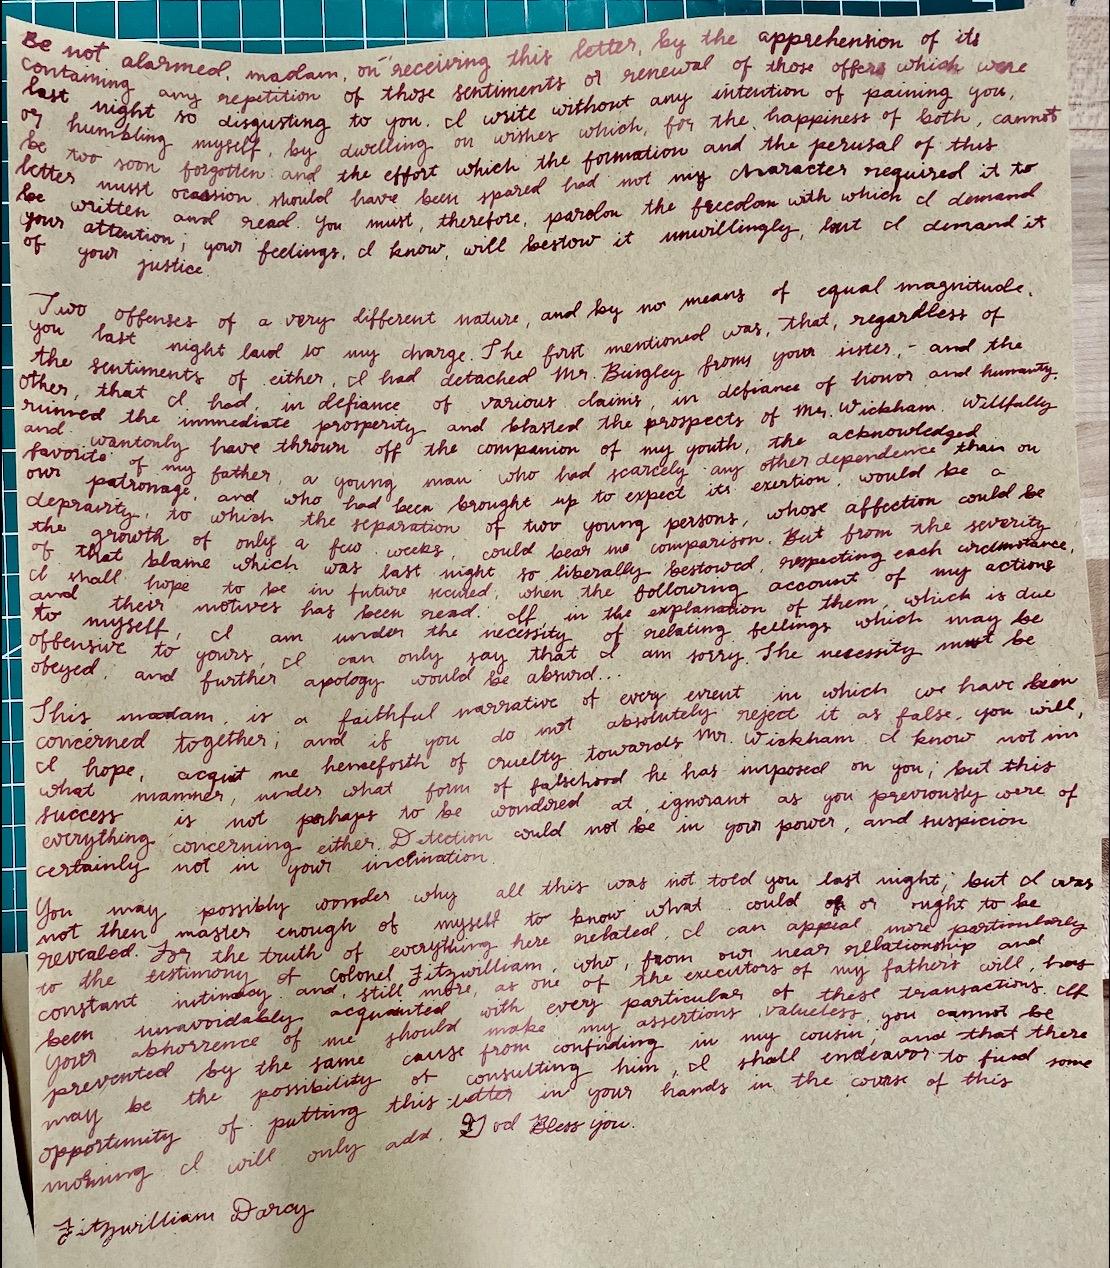 Be not alarmed, madam, on receiving this letter, by the apprehension of its
containing any repetition of those sentiments or renewal of those offers which were
last night so disgusting to you. I write without any intention of paining you,
or humbling myself, by dwelling on wishes which, for the happiness of both, cannot
be too soon forgotten and the effort which the formation and the perusal of this
letter must ocassion should have been spared had not my character required it to
be written and read. You must, therefore, pardon the freedom with which I demand
your attention; your feelings, I know, will bestow it unwillingly, but I demand it
of your justice.
Two offenses of a very different nature, and by no means of equal magnitude,
you last night laid to my charge. The first mentioned was, that, regardless of
the sentiments of either, I had detached Mr. Bingley from your sister, - and the
other, that I had, in defiance of various claims, in defiance of honor and humanity,
ruined the immediate prosperity and blasted the prospects of Mr. Wickham. Willfully
and wantonly have thrown off the companion of my youth, the acknowledged
favorite of my father, a young man who had scarcely any other dependence than on
our patronage, and who had been brought up to expect its exertion, would be a
depravity, to which the separation of two young persons, whose affection could be
the growth of only a few weeks, could bear no comparison. But from the severity
of that blame which was last night so liberally bestowed, respecting each circumstance,
I shall hope to be in future secured, when the following account of my actions
and their motives has been read. If, in the explanation of them, which is due
to myself, I am under the necessity of relating feelings which may be
offensive to yours, I can only say that I am sorry. The necessity must be
obeyed, and further apology would be absurd...
This madam, is a faithful narrative of every event in which we have been
concerned together; and if you do not absolutely reject it as false, you will,
I hope, acquit me henseforth of cruelty towards Mr. Wickham I know not in
what manner, under what form of falsehood he has imposed on you; but this
success is not perhaps to be wondered at, ignorant as you previously were of
everything concerning either. Detection could not be in your power, and suspicion
certainly not in your inclination.
You may possibly wonder why all this was not told you last night; but I was
not then master enough of myself to know what could or ought to be
revealed. For the truth of everything here related, I can appeal more particularly
to the testimony of Colonel Fitzwilliam, who, from our near relationship and
constant intimacy and, still more, as one of the executors of my fathers will, has
been unavoidably acquanted with every particular of these transactions. If
your abhorrence of me should make my assertions valueless, you cannot be
prevented by the same cause from confiding in my cousin; and that there
may be the possibility of consulting him, I shall endeavor to find some
opportunity of putting this letter in your hands in the course of this
morning I will only add. God Bless you.
Fitzwilliam Darcy